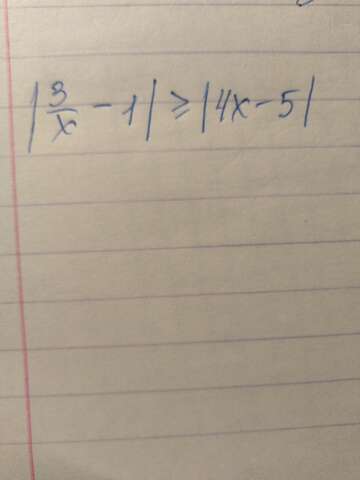 |3/x - 1| ≥ |4x - 5|